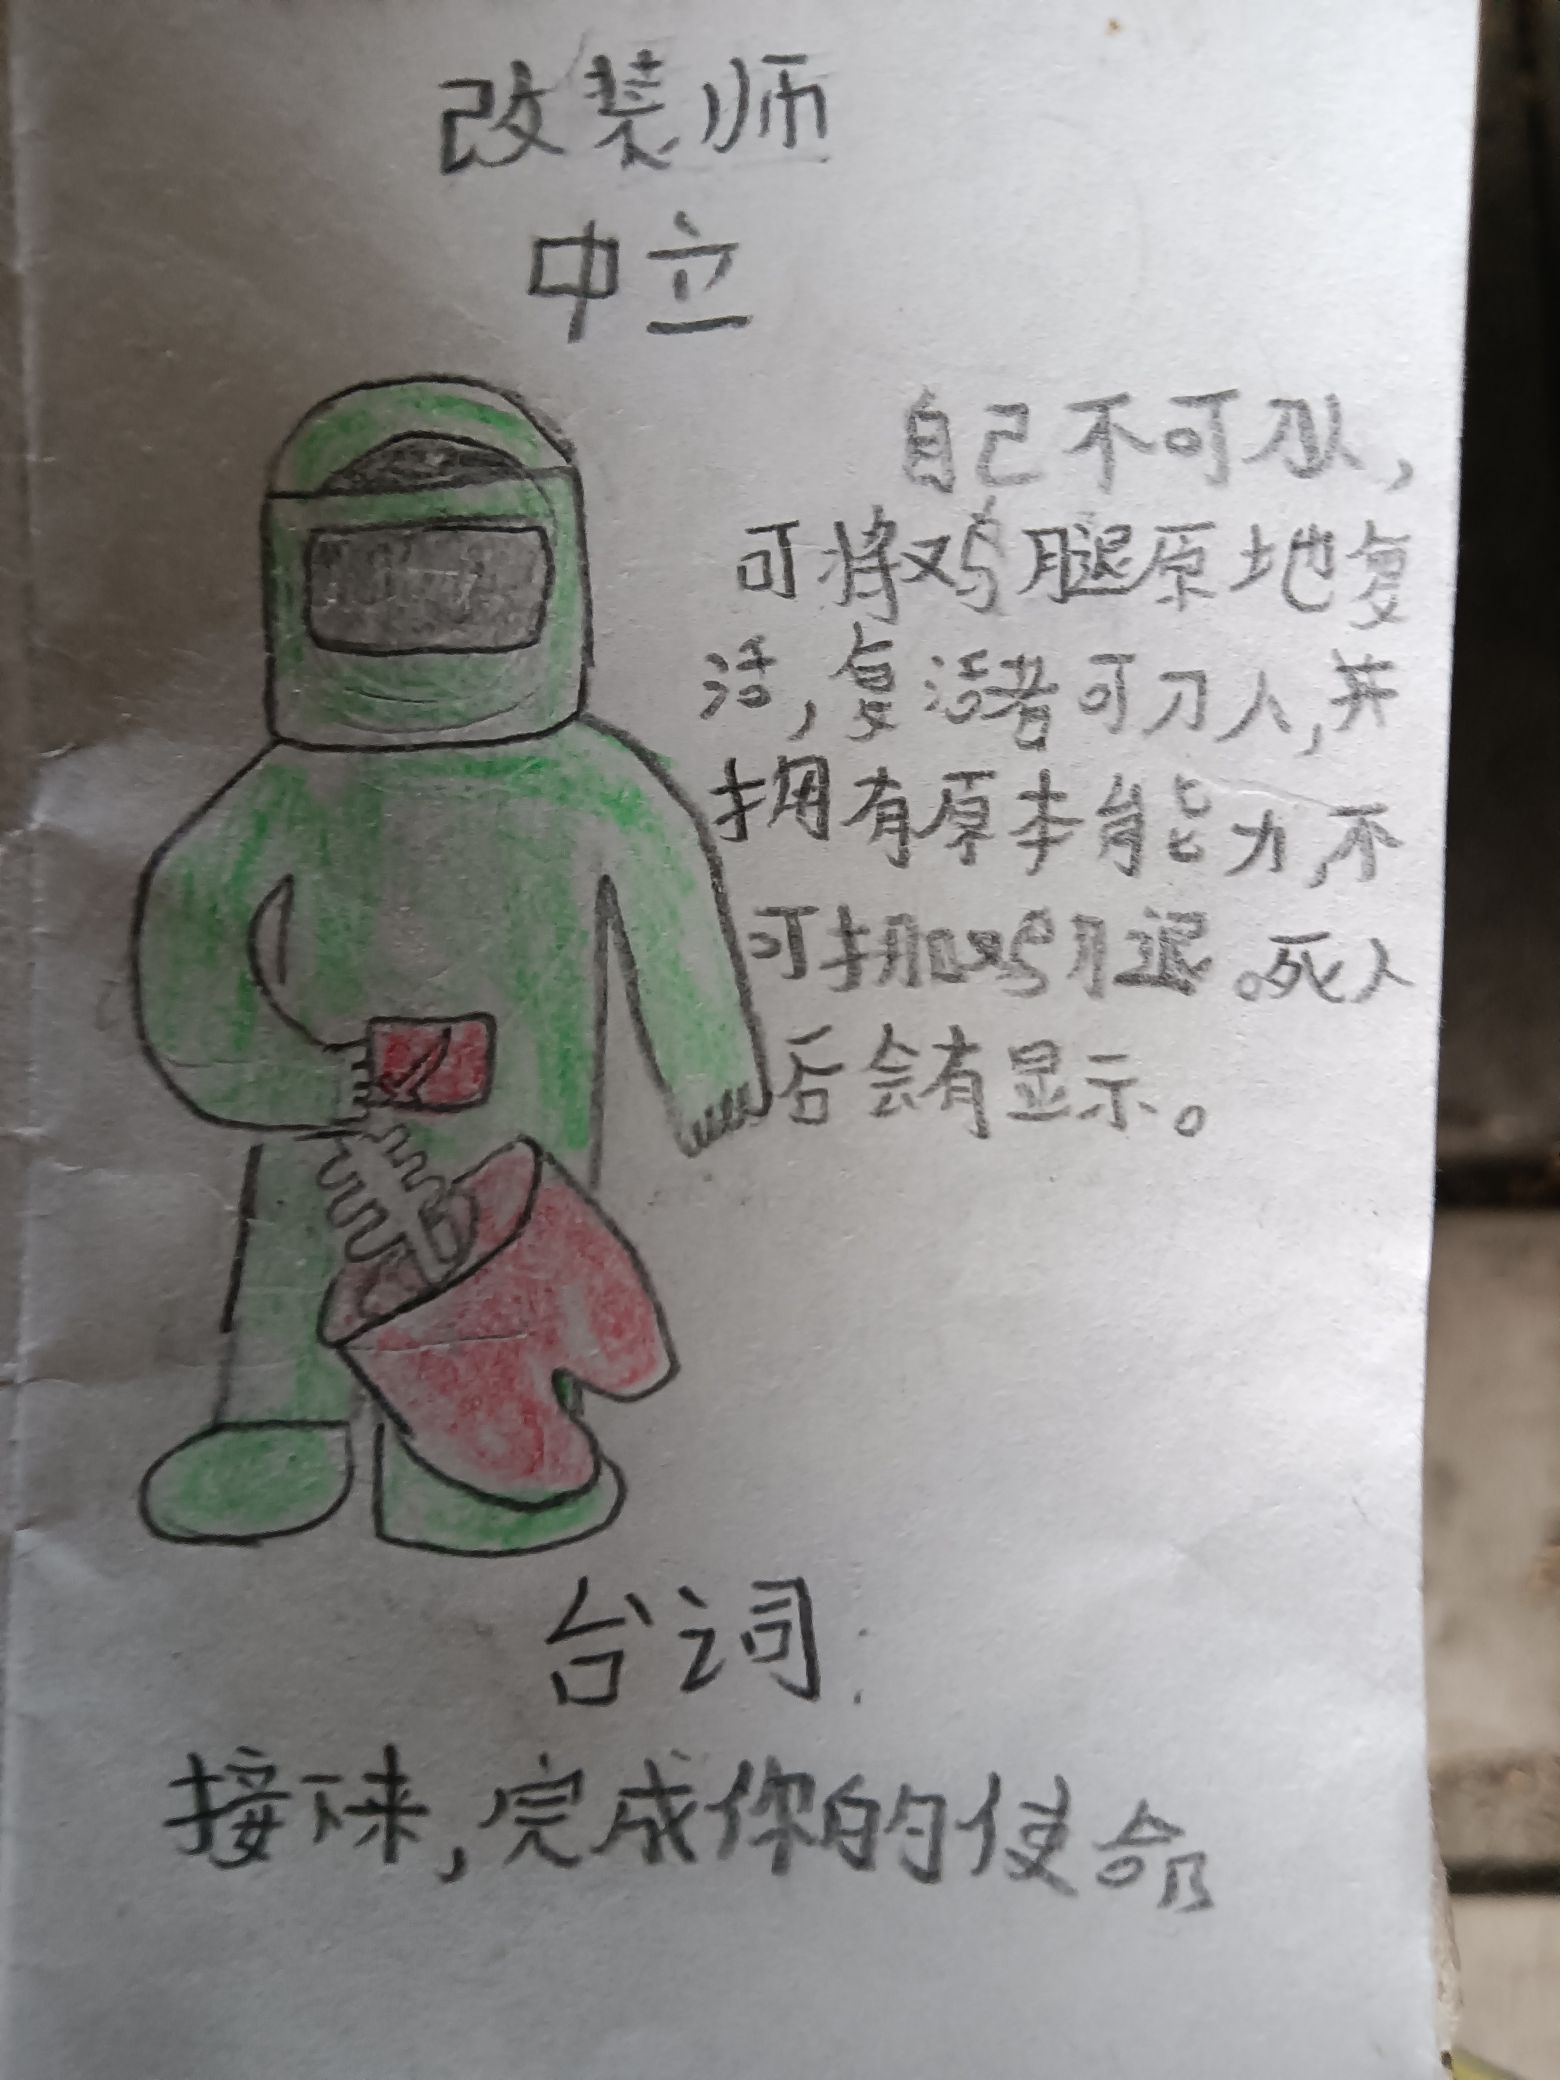 改装师
中立
自己不可刀人,
可将鸡腿原地复
活,复活者可刀人,并
拥有原本能力,不
可挪鸡腿。死人
后会有显示。
台词:
接下来,完成你的使命